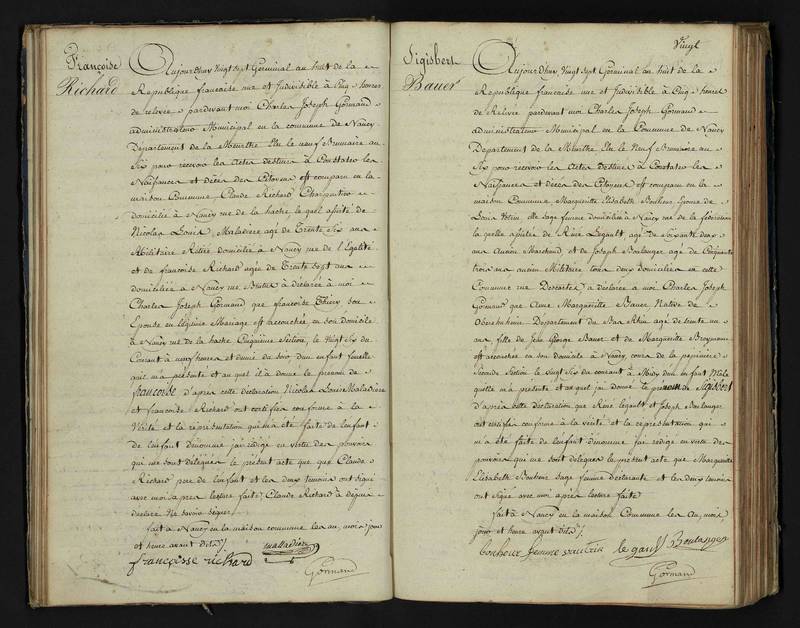 Françoise
Richard
Aujourdhuy Vingt sept Germinal an huit de la
République française une et Indivisible à Cinq heures
de relevée pardevant moi Charles Joseph Gormand
administrateur Municipal en la commune de Nancy
Département de la Meurthe Elu le neuf Brumaire an
Six pour recevoir les Actes destinés à Constater les
Naissances et décès des Citoyens est comparu en la
maison Commune Claude Richard Charpentier
domicilié à Nancy rue de la hache le quel assisté de
Nicolas Louis Maladiere agé de Trente Six ans
Militaire Retiré domicilié à Nancy rue de l'Egalité
et de françoise Richard agée de Trente Sept ans
domiciliée à Nancy rue à déclaré à moi
Charles Joseph Gormand que françoise Thiery Son
Epouse en légitime Mariage est accouchée en son domicile
à Nancy rue de la hache Cinquième Section, le Vingt Six du
Courant à onze heures et demie du soir d'un enfant femelle
qu'il m'a présenté et au quel il à donné le prenom de
françoise d'après cette déclaration Nicolas Louis Maladiere
et françoise Richard ont certifié conforme à la
Vérité et la représentation qui m'a été faite de l'enfant
de l'enfant dénommé j'ai rédigé en vertu des pouvoirs
qui me sont délégués le présent acte que Claude
Richard pere de l'enfant et les deux temoins ont signé
avec moi après lecture faite, Claude Richard à
declaré Ne savoir Signer
fait à Nancy en la maison commune les an, mois jour
et heure avant dits
françoisse richard
malladiere
Gormand
Vingt
Sigisbert
Bauer
Aujourdhuy Vingt Sept Germinal an huit de la
République française une et Indivisible à Cinq heures
de Relevée pardevant moi Charles Joseph Gormand
administrateur Municipal en la Commune de Nancy
Département de la Meurthe Elu le Neuf Brumaire an
Six pour recevoir les Actes destinés à Constater les
Naissances et décès des Citoyens est comparu en la
maison Commune Margueritte Elisabeth Bonheur Epouse de
Louis sage femme domiciliée à Nancy rue de la fédération
la quelle assistée de René Legault agé de Soixante deux
ans Ancien Marchand, et de Joseph Boulanger agé de Cinquante
trois ans ancien Militaire tous deux domiciliés en cette
Commune rue Descartes à declarée à moi Charles Joseph
Gormand que Anne Margueritte Bauer Native de
Oberehnheim Departement du Bas Rhin agé de trente un
ans, fille de Jean George Bauer et de Margueritte
est accouchée en son domicile à Nancy, cours de la pépiniere
Seconde Section le Vingt Six du courant à Midy d'un enfant Male
quelle m'a présenté et au quel j'ai donné le prenom de Sigisbert
d'après cette déclaration que René Legault et Joseph Boulanger
ont certifié conforme à la vérité et la représentation qui
m'a été faite de l'enfant dénommé j'ai rédigé en vertu des
pouvoirs qui me sont délégués le présent acte que Margueritte
Elisabeth Bonheur Sage femme déclarante et les deux temoins
ont signé avec moi après lecture faite
fait à Nancy en la maison Commune les An, mois,
jour et heure avant dits
bonheur femme vautrin le gault Boulanger
Gormand